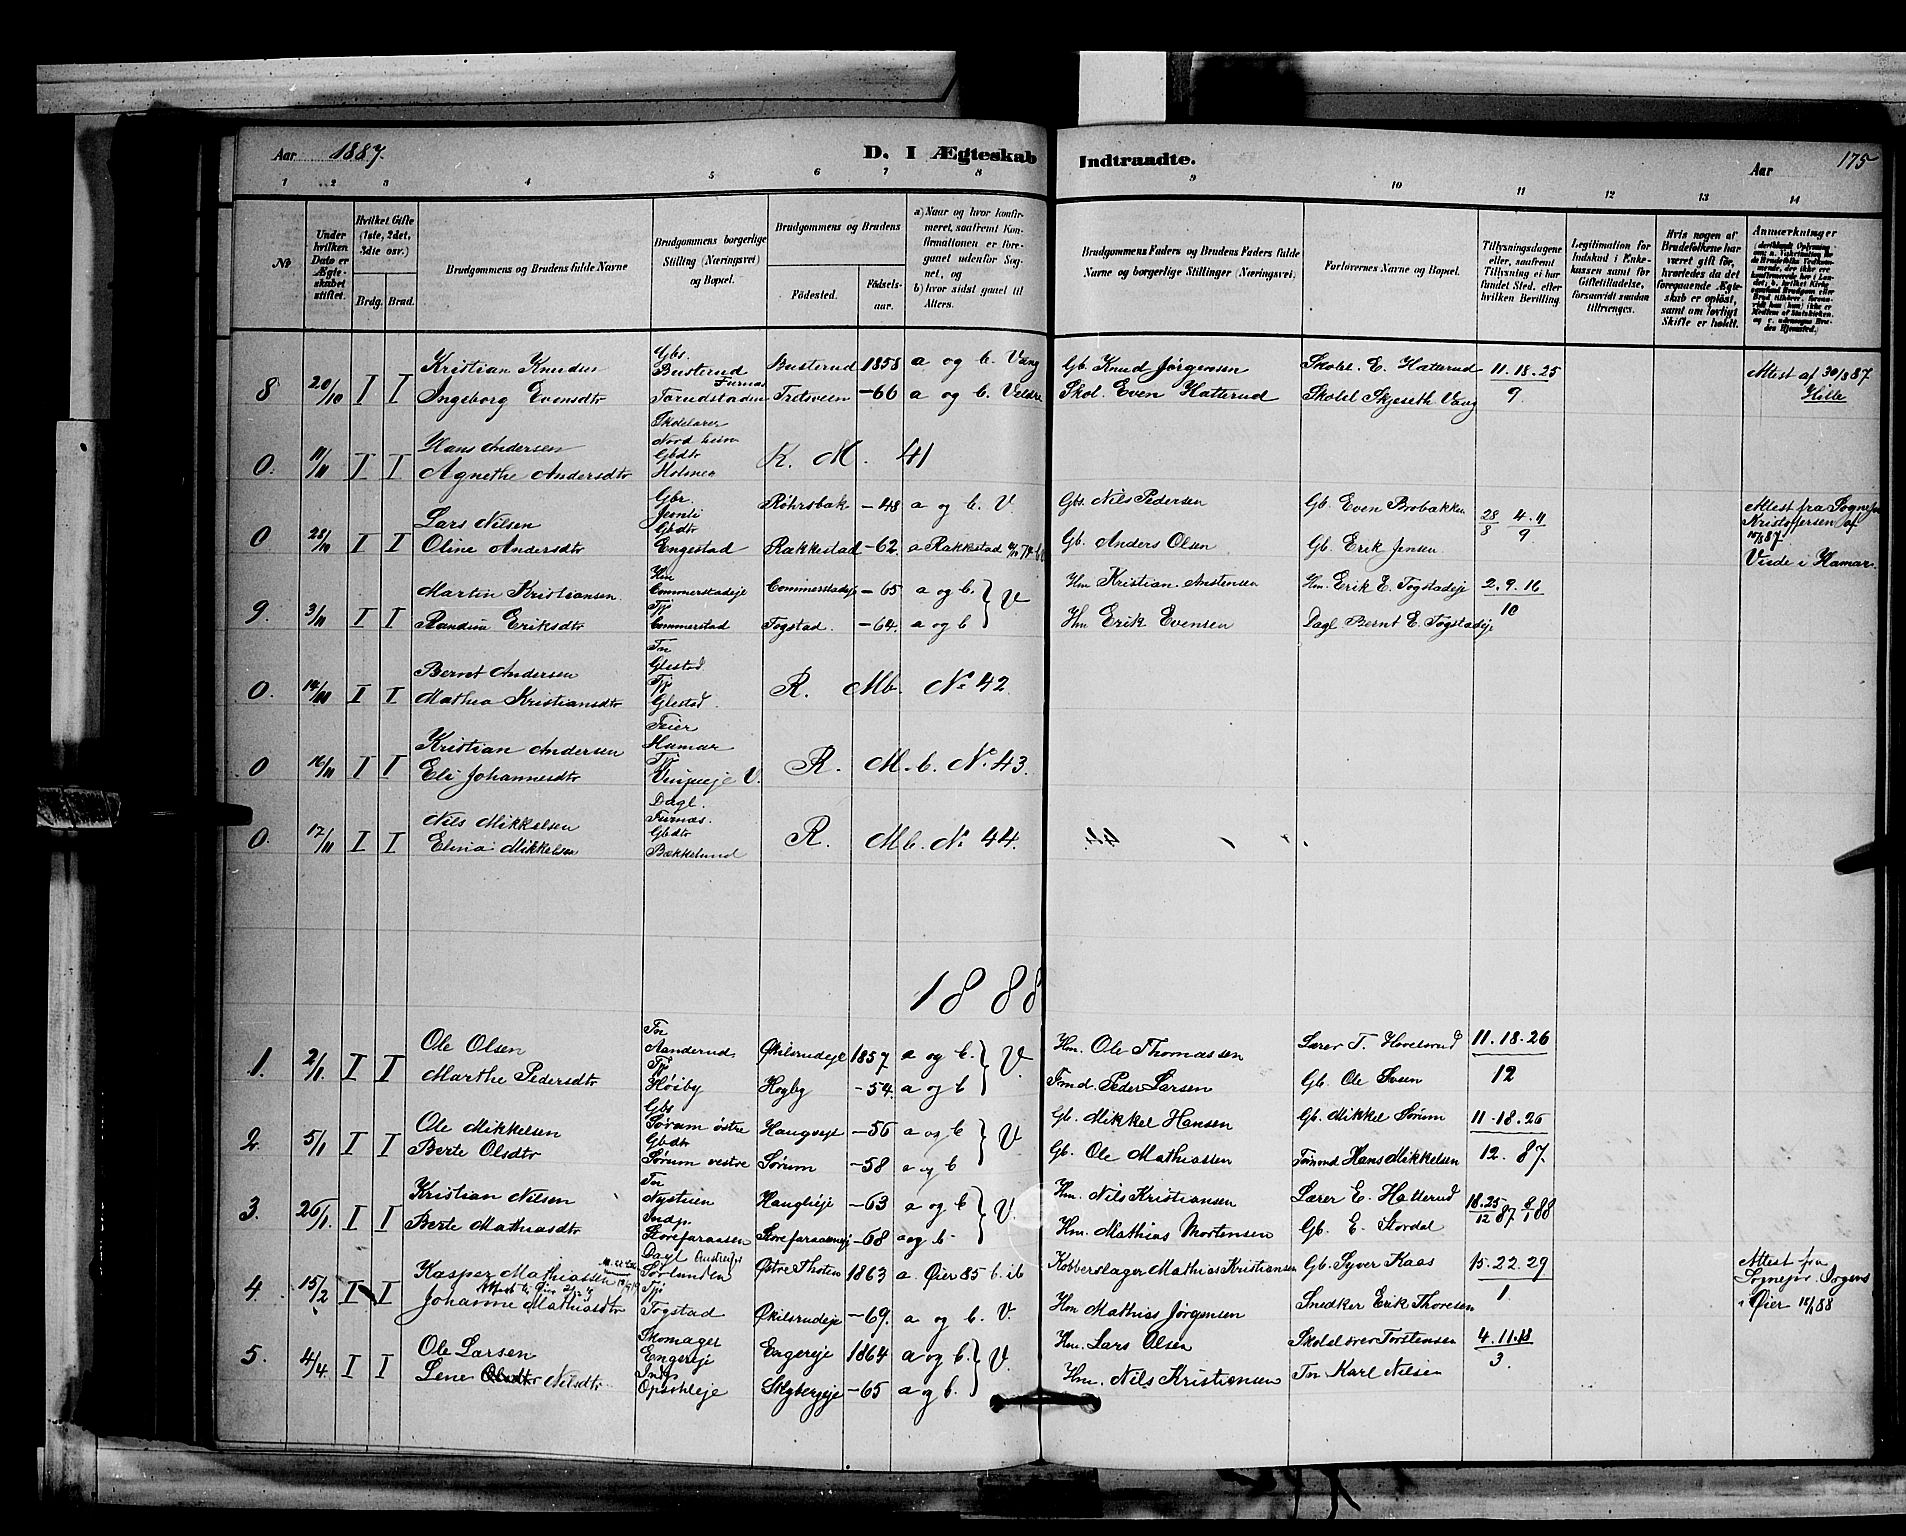 Aar 1887. D. I Ægteskab Indtraadte. Aar 175
1 2 3 4 5 6 7 8 9 10 11 12 13 14
No
Under hvilken Dato er Ægteskabet stiftet.
Hvilket Gifte (1ste, 2det, 3die osv.)
Brdg. Brud.
Brudgommens og Brudens fulde Navne
Brudgommens borgerlige Stilling (Næringsvei) og Bopæl.
Brudgommens og Brudens
Fødested. Fødselsaar.
a) Naar og hvor konfirmeret, saafremt Konfirmationen er foregaaet udenfor Sognet, og
b) hvor sidst gaaet til Alters.
Brudgommens Faders og Brudens Faders fulde Navne og borgerlige Stillinger (Næringsvei).
Forlovernes Navne og Bopæl.
Tillysningsdagene eller, saafremt Tillysning ei har fundet Sted, efter hvilken Bevilling.
Legitimation for Indskud i Enkekassen samt for Giftetilladelse, forsaavidt saadan tiltrænges.
Hvis nogen af Brudefolkene har været gift før, hvorledes da det foregaaende Ægteskab er opløst, samt om lovligt Skifte er holdt.
Anmærkninger
Kristian Knudsen Gbs. Busterud Furnæs Busterud 1858 a og b. Vang Gb. Knud Jørgensen Skolel. E. Hatterud 11. 18. 25 Attest af 30/8 87
8 20/10 I I Ingeborg Evensdtr Trotveen -66 a og b. Veldre Skol. Even Hatterud Skolel Skjeseth Vang 9 Hille
Hans Andersen Skolelærer Nordheim
0. 11/11 I I Agnethe Andersdtr Gbdtr Holmen K. M. 41
Lars Nilsen Gbr. -48 a og b. V Gbs. Nils Pedersen Gb. Even Brobakken 28/8 4. 11/9 Attest fra Sognepr Kristofersen af
0 I I Oline Andersdtr Gbdtr Engestad Rakkestad -62. a Rakkestad Gb. Anders Olsen Gb. Erik Jensen Viede i Hamar.
Martin Kristiansen Hm Commerstadeje Commerstadeje -65 a og b. } V Hm Kristian Hm. Erik E. Togstadeje 2. 9. 16
9. 3/11 I I Randine Eriksdtr Tj Commerstad Togstad. -64. a og b Hm Erik Evensen Dagl. Bernt E. Togstadeje 10
Bernt Andersen Tn Glestad
0. 14/11 I I Mathea Kristiansdtr Tj Glestad. R. Mb. No 42
Kristian Andersen Feier Hamar
0 16/11 I I Eli Johannesdtr Tj V. R. M. b. No 43.
Nils Mikkelsen Dagl. Furnæs.
0. 17/11 I I Elina Mikkelsen Gbdtr Bækkelund R. M b. No 44.
1888
Ole Olsen Tn Aanderud Økilsrudeje 1857 a og b. } V. Hm. Ole Thomassen Lærer T. Hovelsrud 11. 18. 26
1. 2/1. I I Marthe Pedersdtr Tj Høiby Hogby -54. a og b Fmd. Peder Larsen Gb. Ole Sveen 12
Ole Mikkelsen Gbs Sørum østre Haugveje -56 a og b } V Gb. Mikkel Hansen Gb. Mikkel Sørum 11. 18. 26
2. 5/1 I I Berte Olsdtr Gbdtr Sørum vestre Sørum -58 a og b Gb. Ole Mathiassen Hans Mikkelsen 12. 87.
Kristian Nilsen Tn Nystuen Haugleje -63 a og b } V. Hm. Nils Kristiansen Lærer E. Hatterud 18. 25/12 87 8/1 88
3. 26/1. I I Berte Mathiasdtr Indp. Storefaraasen Storefaraaseneje -68 a og b Hm. Mathias Mortensen Gb. E. Stordal
Kasper Mathiassen Dagl Sørlunden Østre Thoten 1863 a. Øier 85 b. ib Kobberslager Mathias Kristiansen Gb. Syver Kaas 15. 22. 29 Attest fra Sognepr.
4. 15/2 I I Johanne Mathiasdtr Tj Togstad Økilsrudeje -69. a og b. V. Hm Mathias Jørgensen Snedker Erik Thoresen 1 i Øier 88
Ole Larsen Skomager Engereje Engereje 1864 a og b. } V. Hm. Lars Olsen Skolelærer Torstensen 4. 11. 18
5. 4/4 I I Lene Olsdtr Nilsdtr Indp Opsahleje Skybergeje -65 a og b. Hm. Nils Kristiansen Tn Karl Nilsen 3.